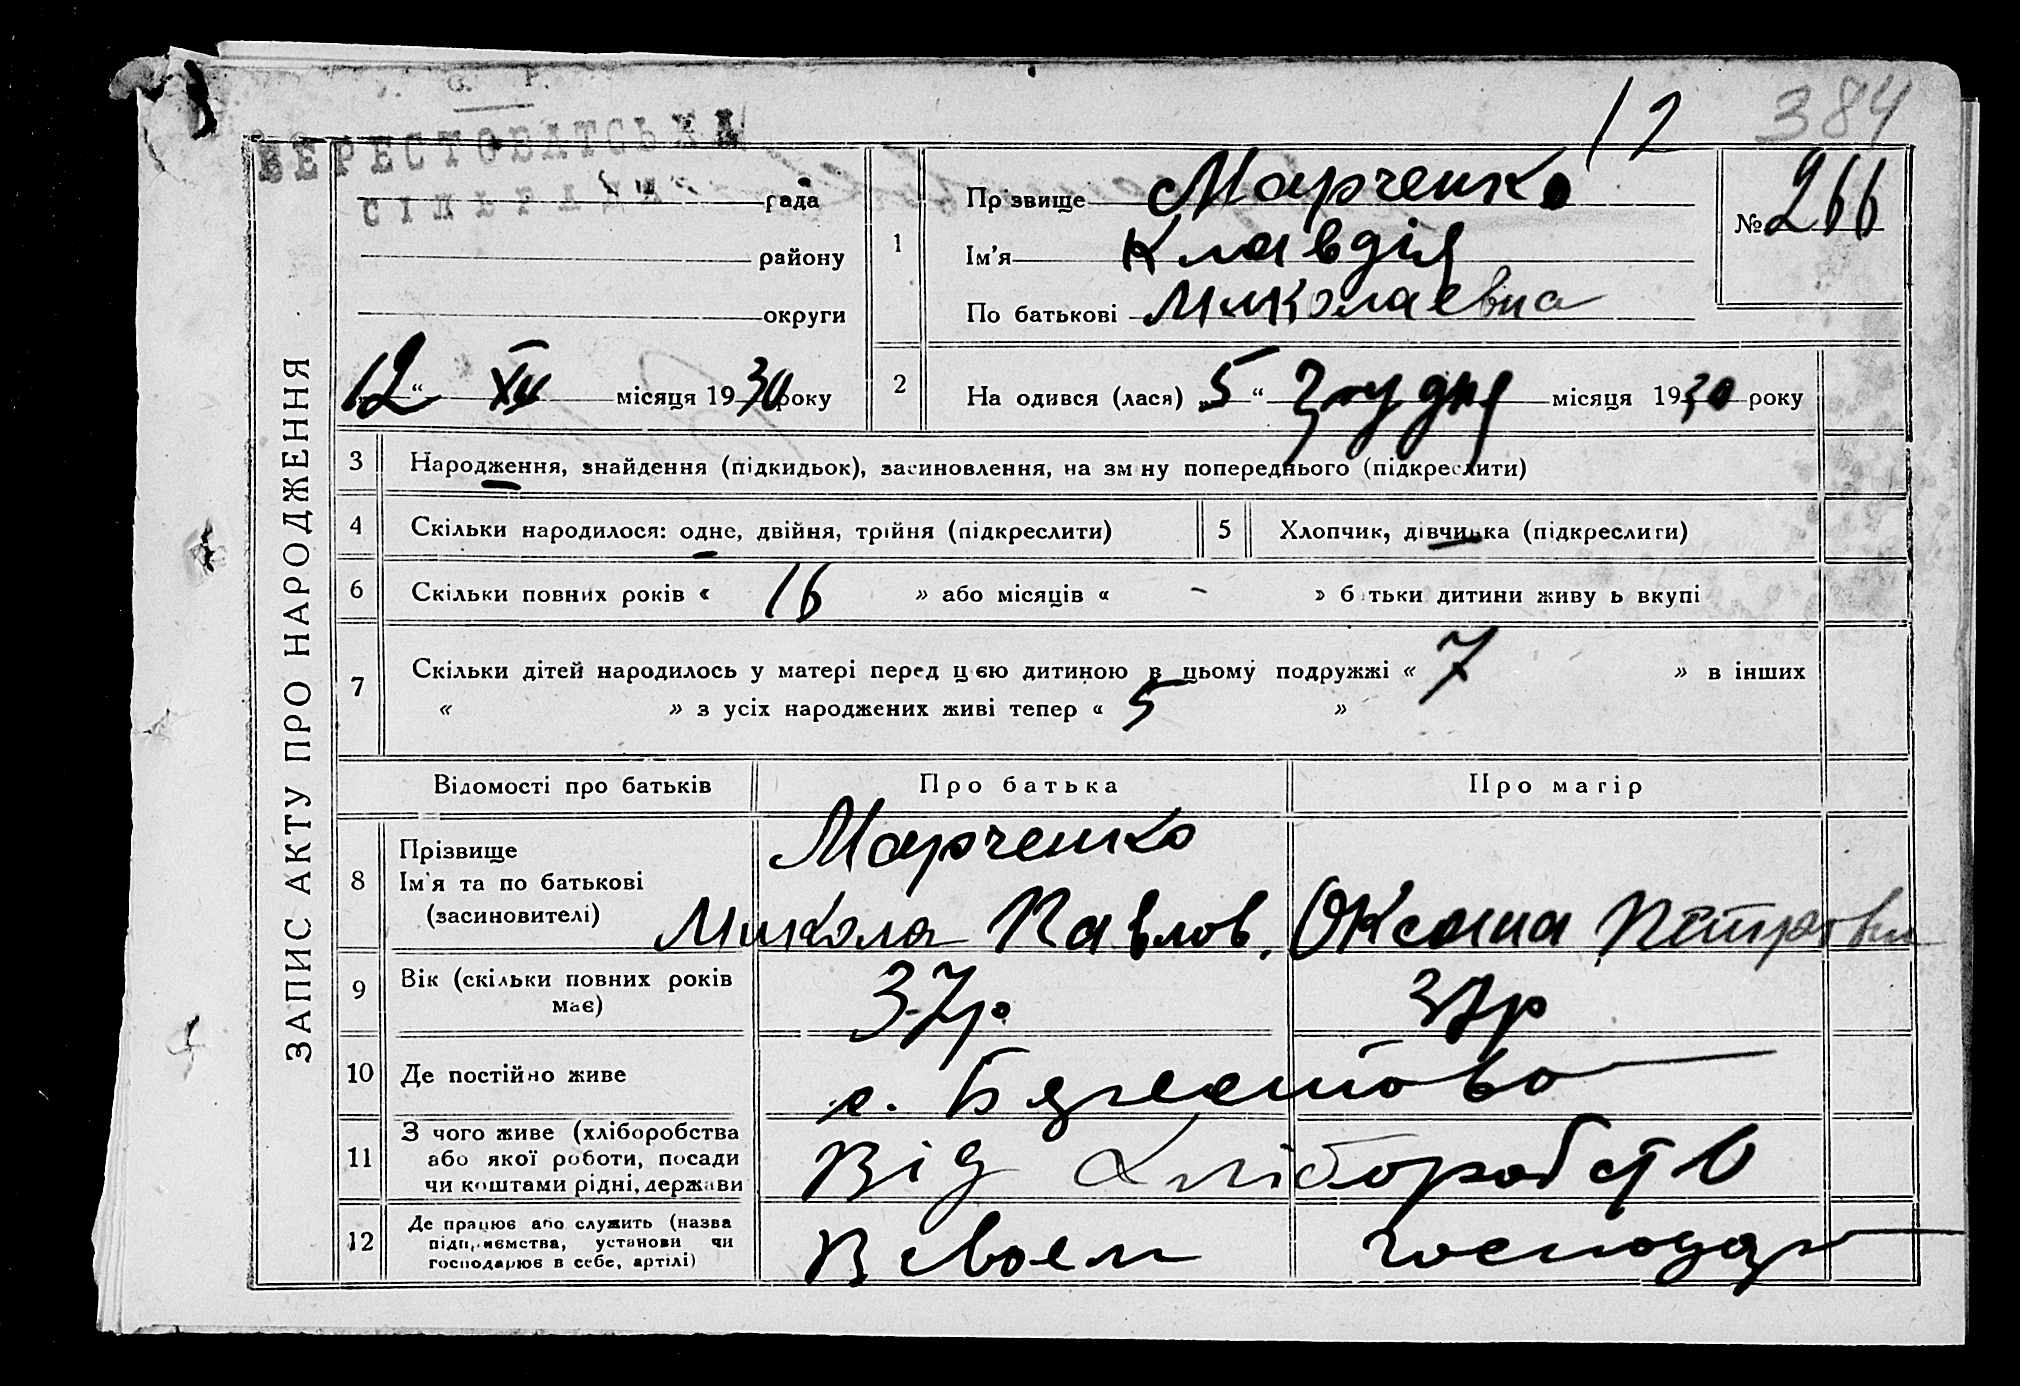 12 384
БЕРЕСТОВАТСЬКА
СІЛЬРАДА
рада
району
округи
12 " XII місяця 1930 року
ЗАПИС АКТУ ПРО НАРОДЖЕННЯ
1 Пр звище Марченко
Ім'я Клавдія
По батькові Миколаевна
№ 266
2 На одився (лася) 5 " Грудня місяця 1930 року
3 Народження, знайдення (підкидьок), засиновлення, на зм ну попереднього (підкреслити)
4 Скільки народилося: одне, двійня, трійня (підкреслити)
5 Хлопчик, дівчинка (підкреслити)
6 Скільки повних років « 16 » або місяців « - » б тьки дитини живу ь вкупі
7 Скільки дітей народилось у матері перед цєю дитиною в цьому подружжі « 7 » в інших
« » з усіх народжених живі тепер « 5 »
Відомості про батьків Про батька Про матір
8 Прізвище
Ім'я та по батькові
(засиновителі)
Марченко
Микола Павлов. Оксана Петровн
9 Вік (скільки повних років
має)
37р 37р
10 Де постійно живе с. Берестово
11 З чого живе (хліборобства
або якої роботи, посади
чи коштами рідні, держави
Від Хліборобств
12 Де працює або служить (назва
підприємства, установи чи
господарює в себе, артілі)
В своем господар